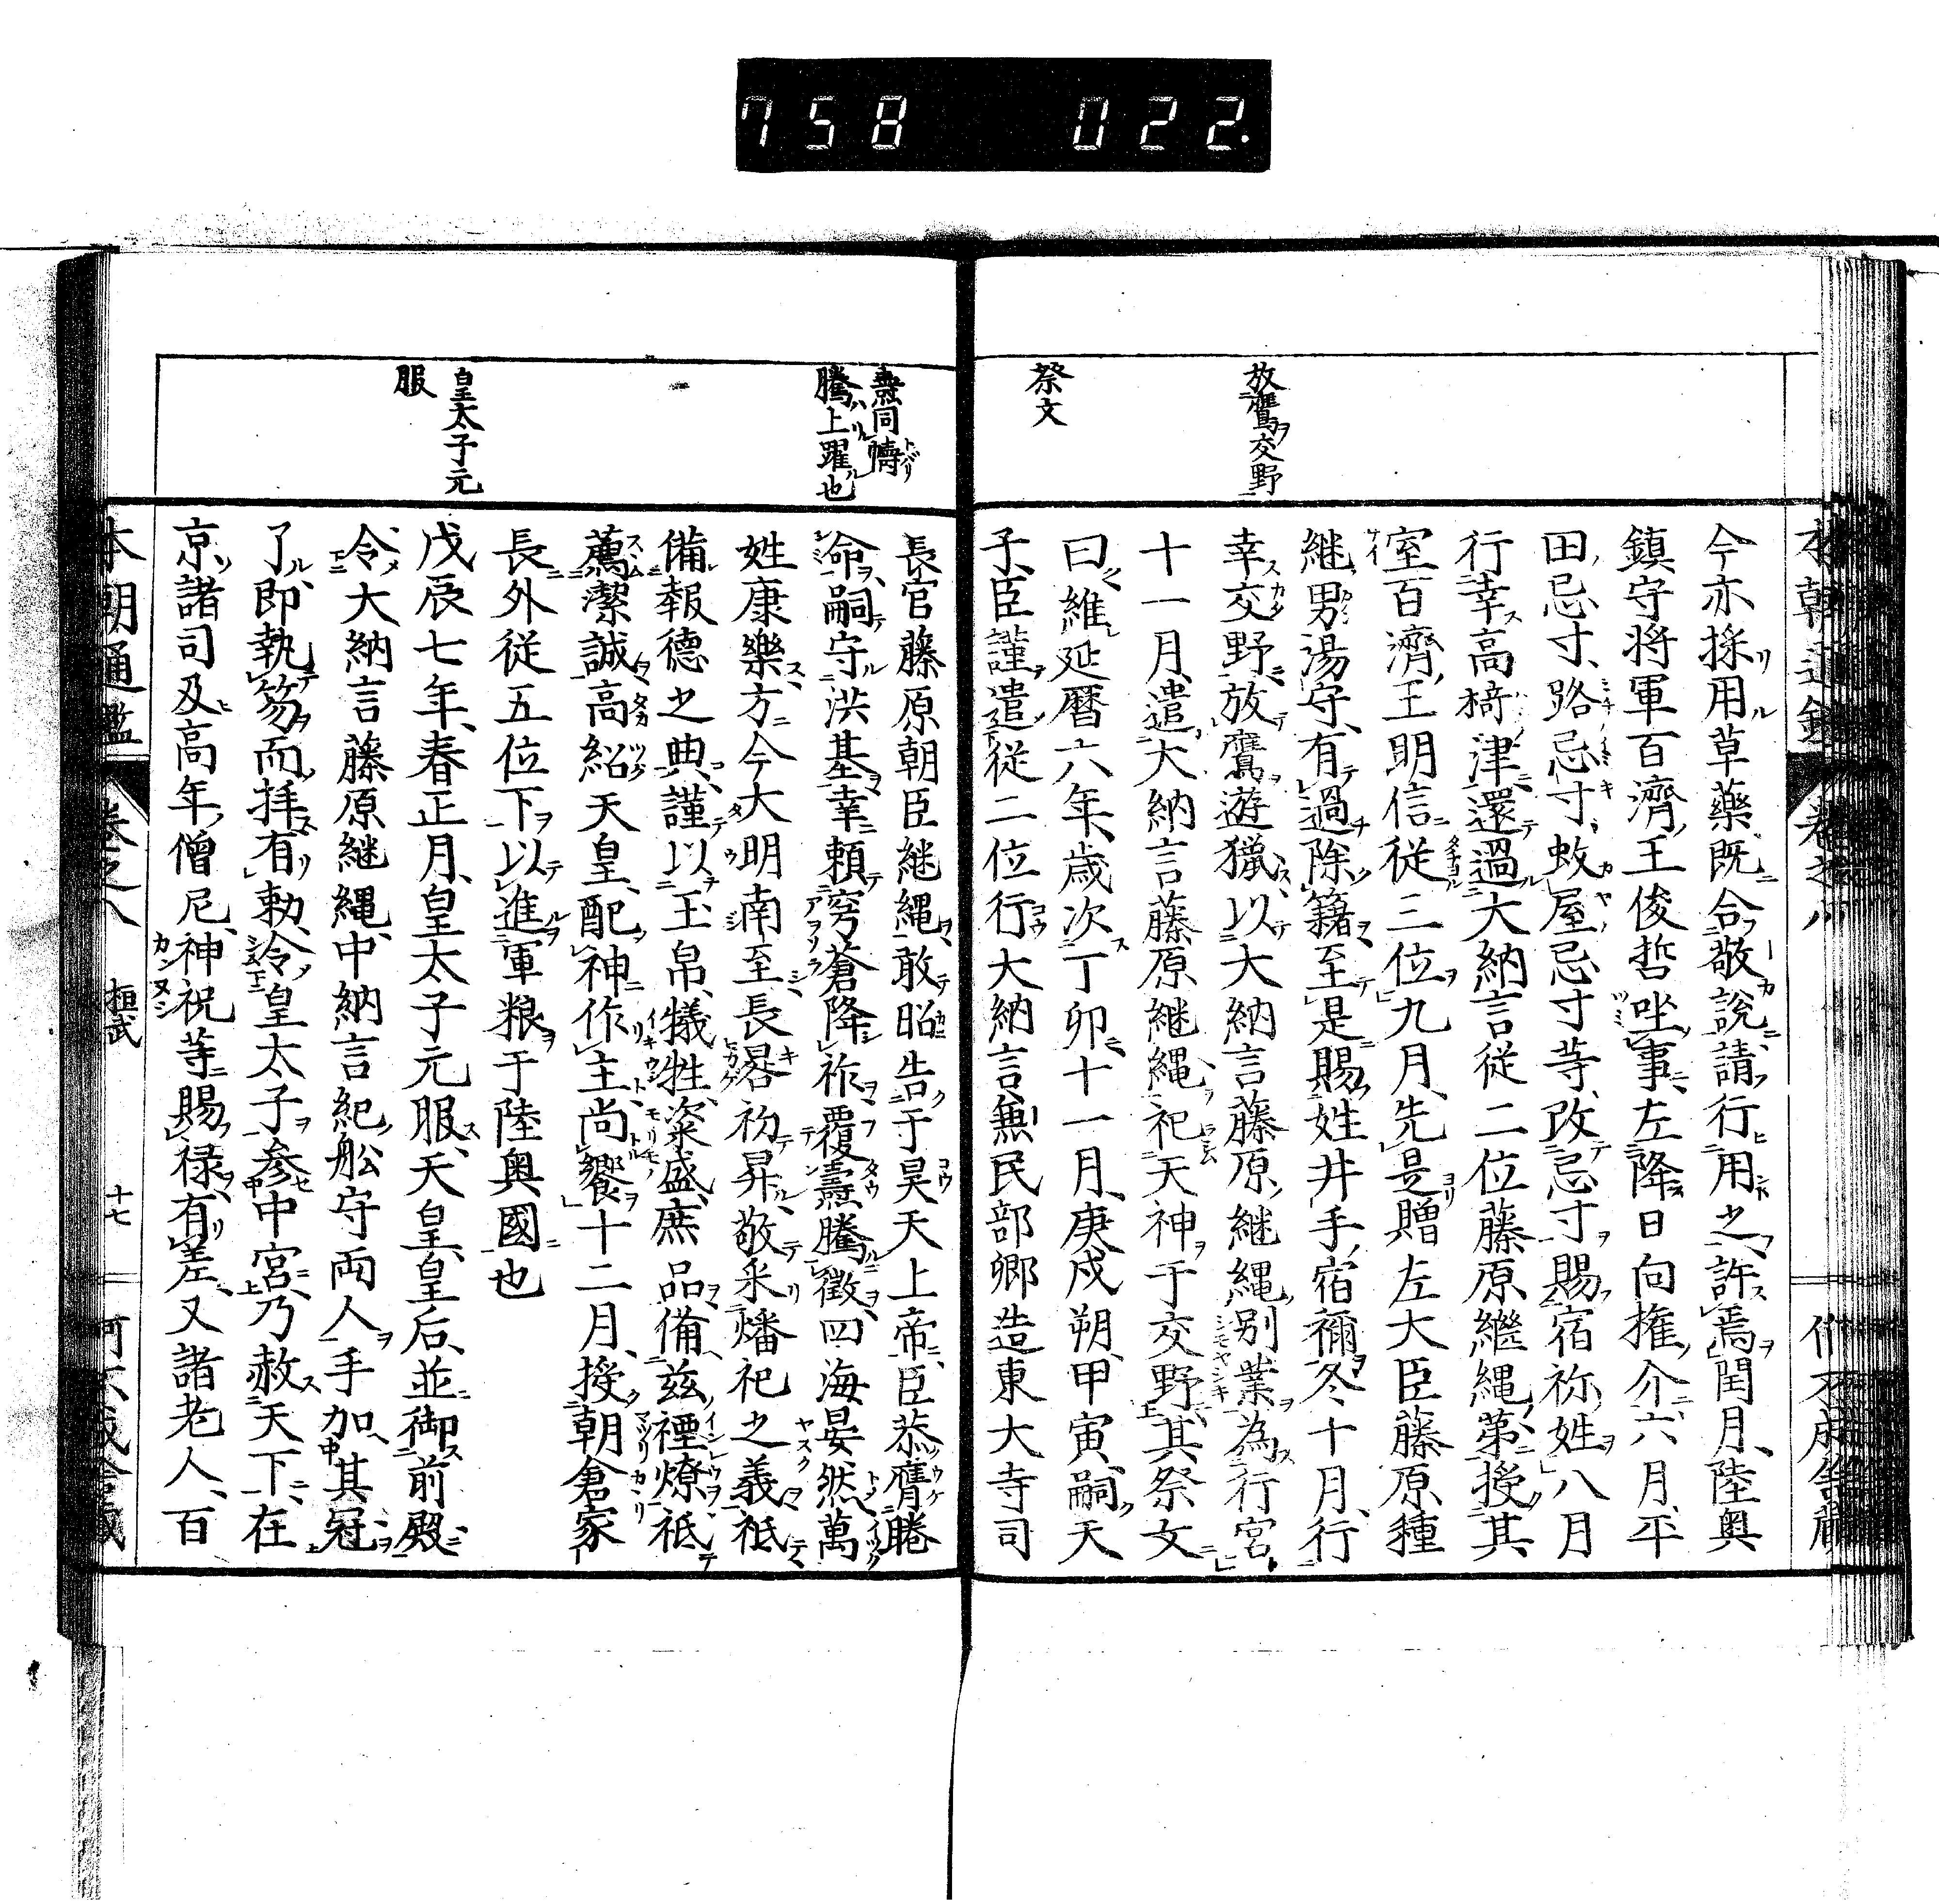 758 022.
放鷹交野
祭文
今亦採用草藥既合敬說請行用之許焉閏月陸奥
鎮守将軍百濟王俊哲坐事左降日向權介六月平
田忌寸路忌寸蚊屋忌寸等改忌寸賜宿祢姓八月
行幸高椅津還過大納言従二位藤原繼縄第授其
室百濟王明信従三位九月先是贈左大臣藤原種
継男湯守有過除籍至是賜姓井手宿禰冬十月行
幸交野放鷹遊獵以大納言藤原継縄別業為行宮
十一月遣大納言藤原継縄祀天神于交野其祭文
曰維延暦六年歳次丁卯十一月庚戌朔甲寅嗣天
子臣謹遣従二位行大納言無民部卿造東大寺司
燾同幬
騰上躍也
皇太子元
服
長官藤原朝臣継縄敢昭告于昊天上帝臣恭膺睠
命嗣守洪基幸頼穹蒼降祚覆燾騰徵四海晏然萬
姓康樂方今大明南至長晷初昇敬采燔祀之義祗
備報德之典謹以玉帛犠牲粢盛庶品備茲禋燎祗
薦潔誠高紹天皇配神作主尚饗十二月授朝倉家
長外従五位下以進軍粮于陸奥國也
戊辰七年春正月皇太子元服天皇皇后並御前殿
令大納言藤原継縄中納言紀舩守両人手加其冠
了即執笏而拝有勅令皇太子参中宮乃赦天下在
京諸司及高年僧尼神祝等賜禄有差又諸老人百
本朝通鑑 卷之八 桓武 十七